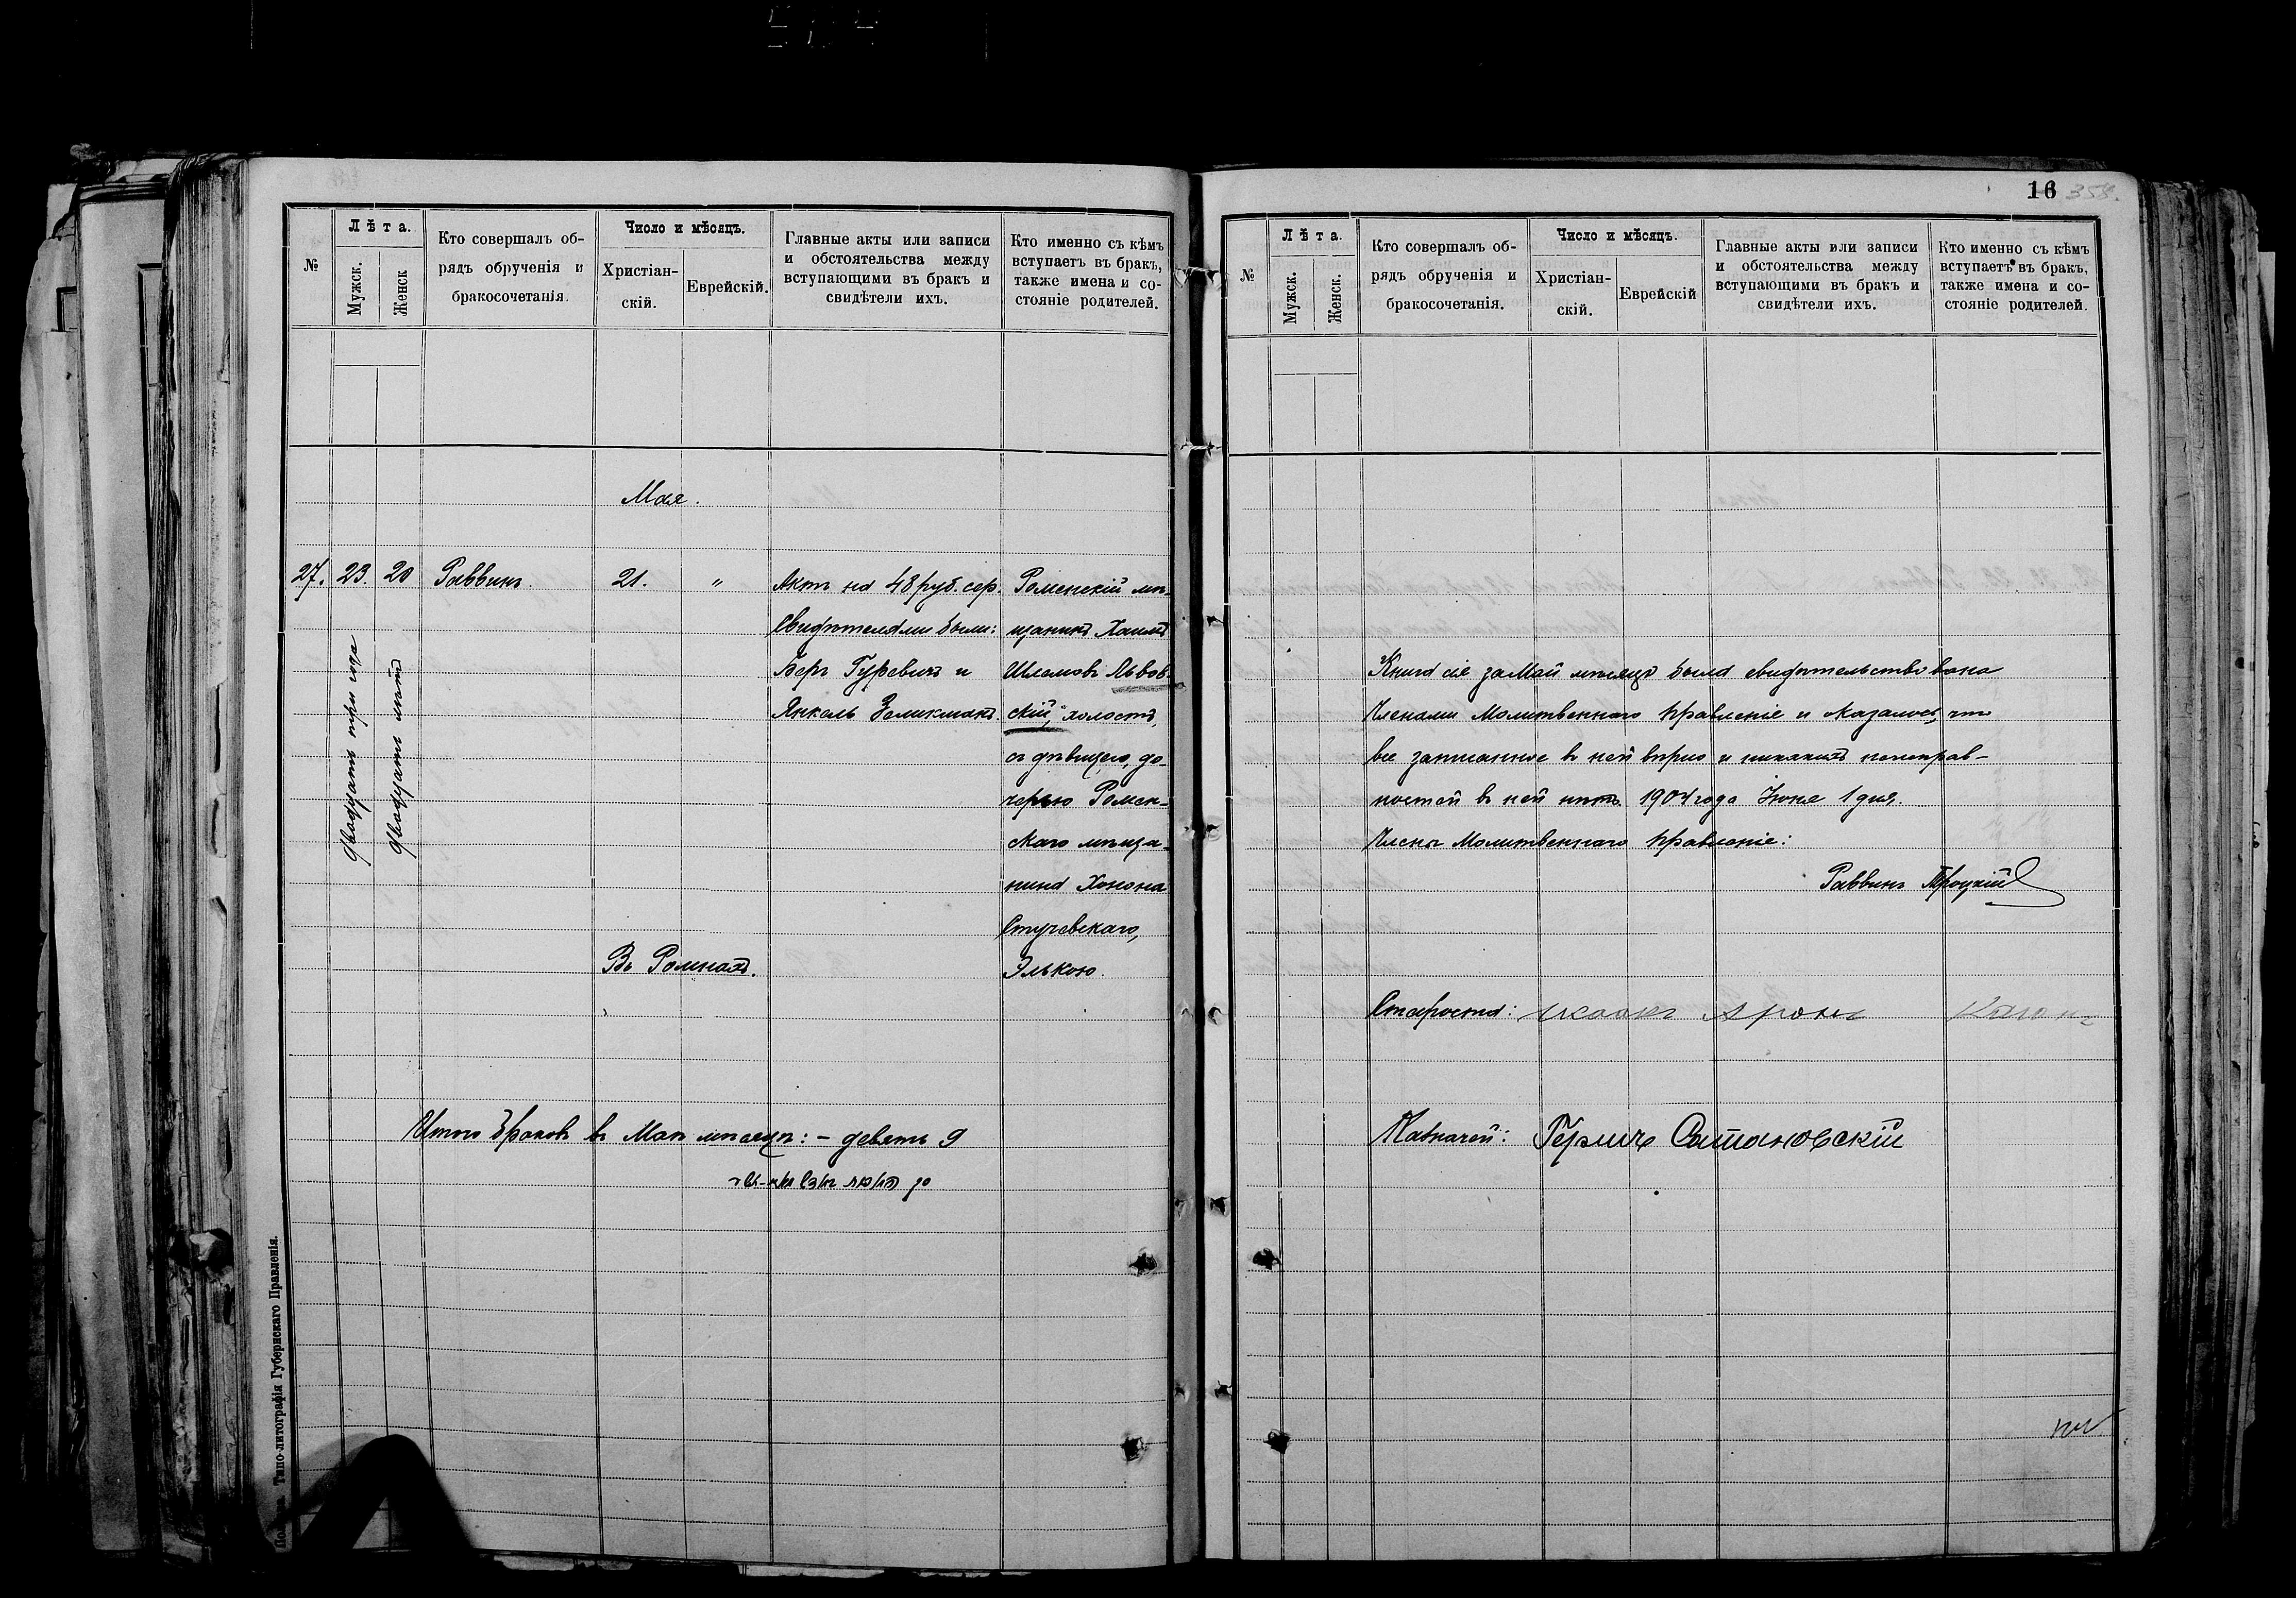 №
Лѣта.
Мужск.
Женск
Кто совершалъ об-
рядъ обрученія и
бракосочетанія.
Число и мѣсяцъ.
Христіан-
скій.
Еврейскій.
Главные акты или записи
и обстоятельства между
вступающими въ бракъ и
свидѣтели ихъ.
Кто именно съ кѣмъ
вступаетъ въ бракъ,
также имена и со-
стояніе родителей.
Мая.
27.
23.
20
двадцать три года
двадцать лѣтъ
Раввинъ
21.
"
Въ Ромнахъ.
Актъ на 48 руб. сер.
Свидѣтелями были:
Беръ Гуревичъ и
Янкель Зеликманъ.
Роменскій мѣ-
щанинъ Хаимъ
Шлемовъ Львов-
скій, холостъ,
съ дѣвицею, до-
черью Ромен-
скаго мѣща-
нина Хонона
Стучевскаго,
Элькою.
Итого браковъ въ Маѣ мѣсяцѣ: – девять 9
Типо-литографія Губернскаго Правленія.
16 358.
№
Лѣта.
Мужск.
Женск.
Кто совершалъ об-
рядъ обрученія и
бракосочетанія.
Число и мѣсяцъ.
Христіан-
скій.
Еврейскій
Главные акты или записи
и обстоятельства между
вступающими въ бракъ и
свидѣтели ихъ.
Кто именно съ кѣмъ
вступаетъ въ бракъ,
также имена и со-
стояніе родителей.
Книга сія за Май мѣсяцъ была свидѣтельствована
Членами Молитвеннаго правленіе и оказалось, что
все записанное въ ней вѣрно и никакихъ неисправ-
ностей въ ней нѣтъ. 1904 года Іюня 1 дня.
Члены Молитвеннаго правленіе:
Раввинъ Троцкій
Староста: Исаакъ Аронъ Каганъ
Казначей: Гершъ Сатановскій